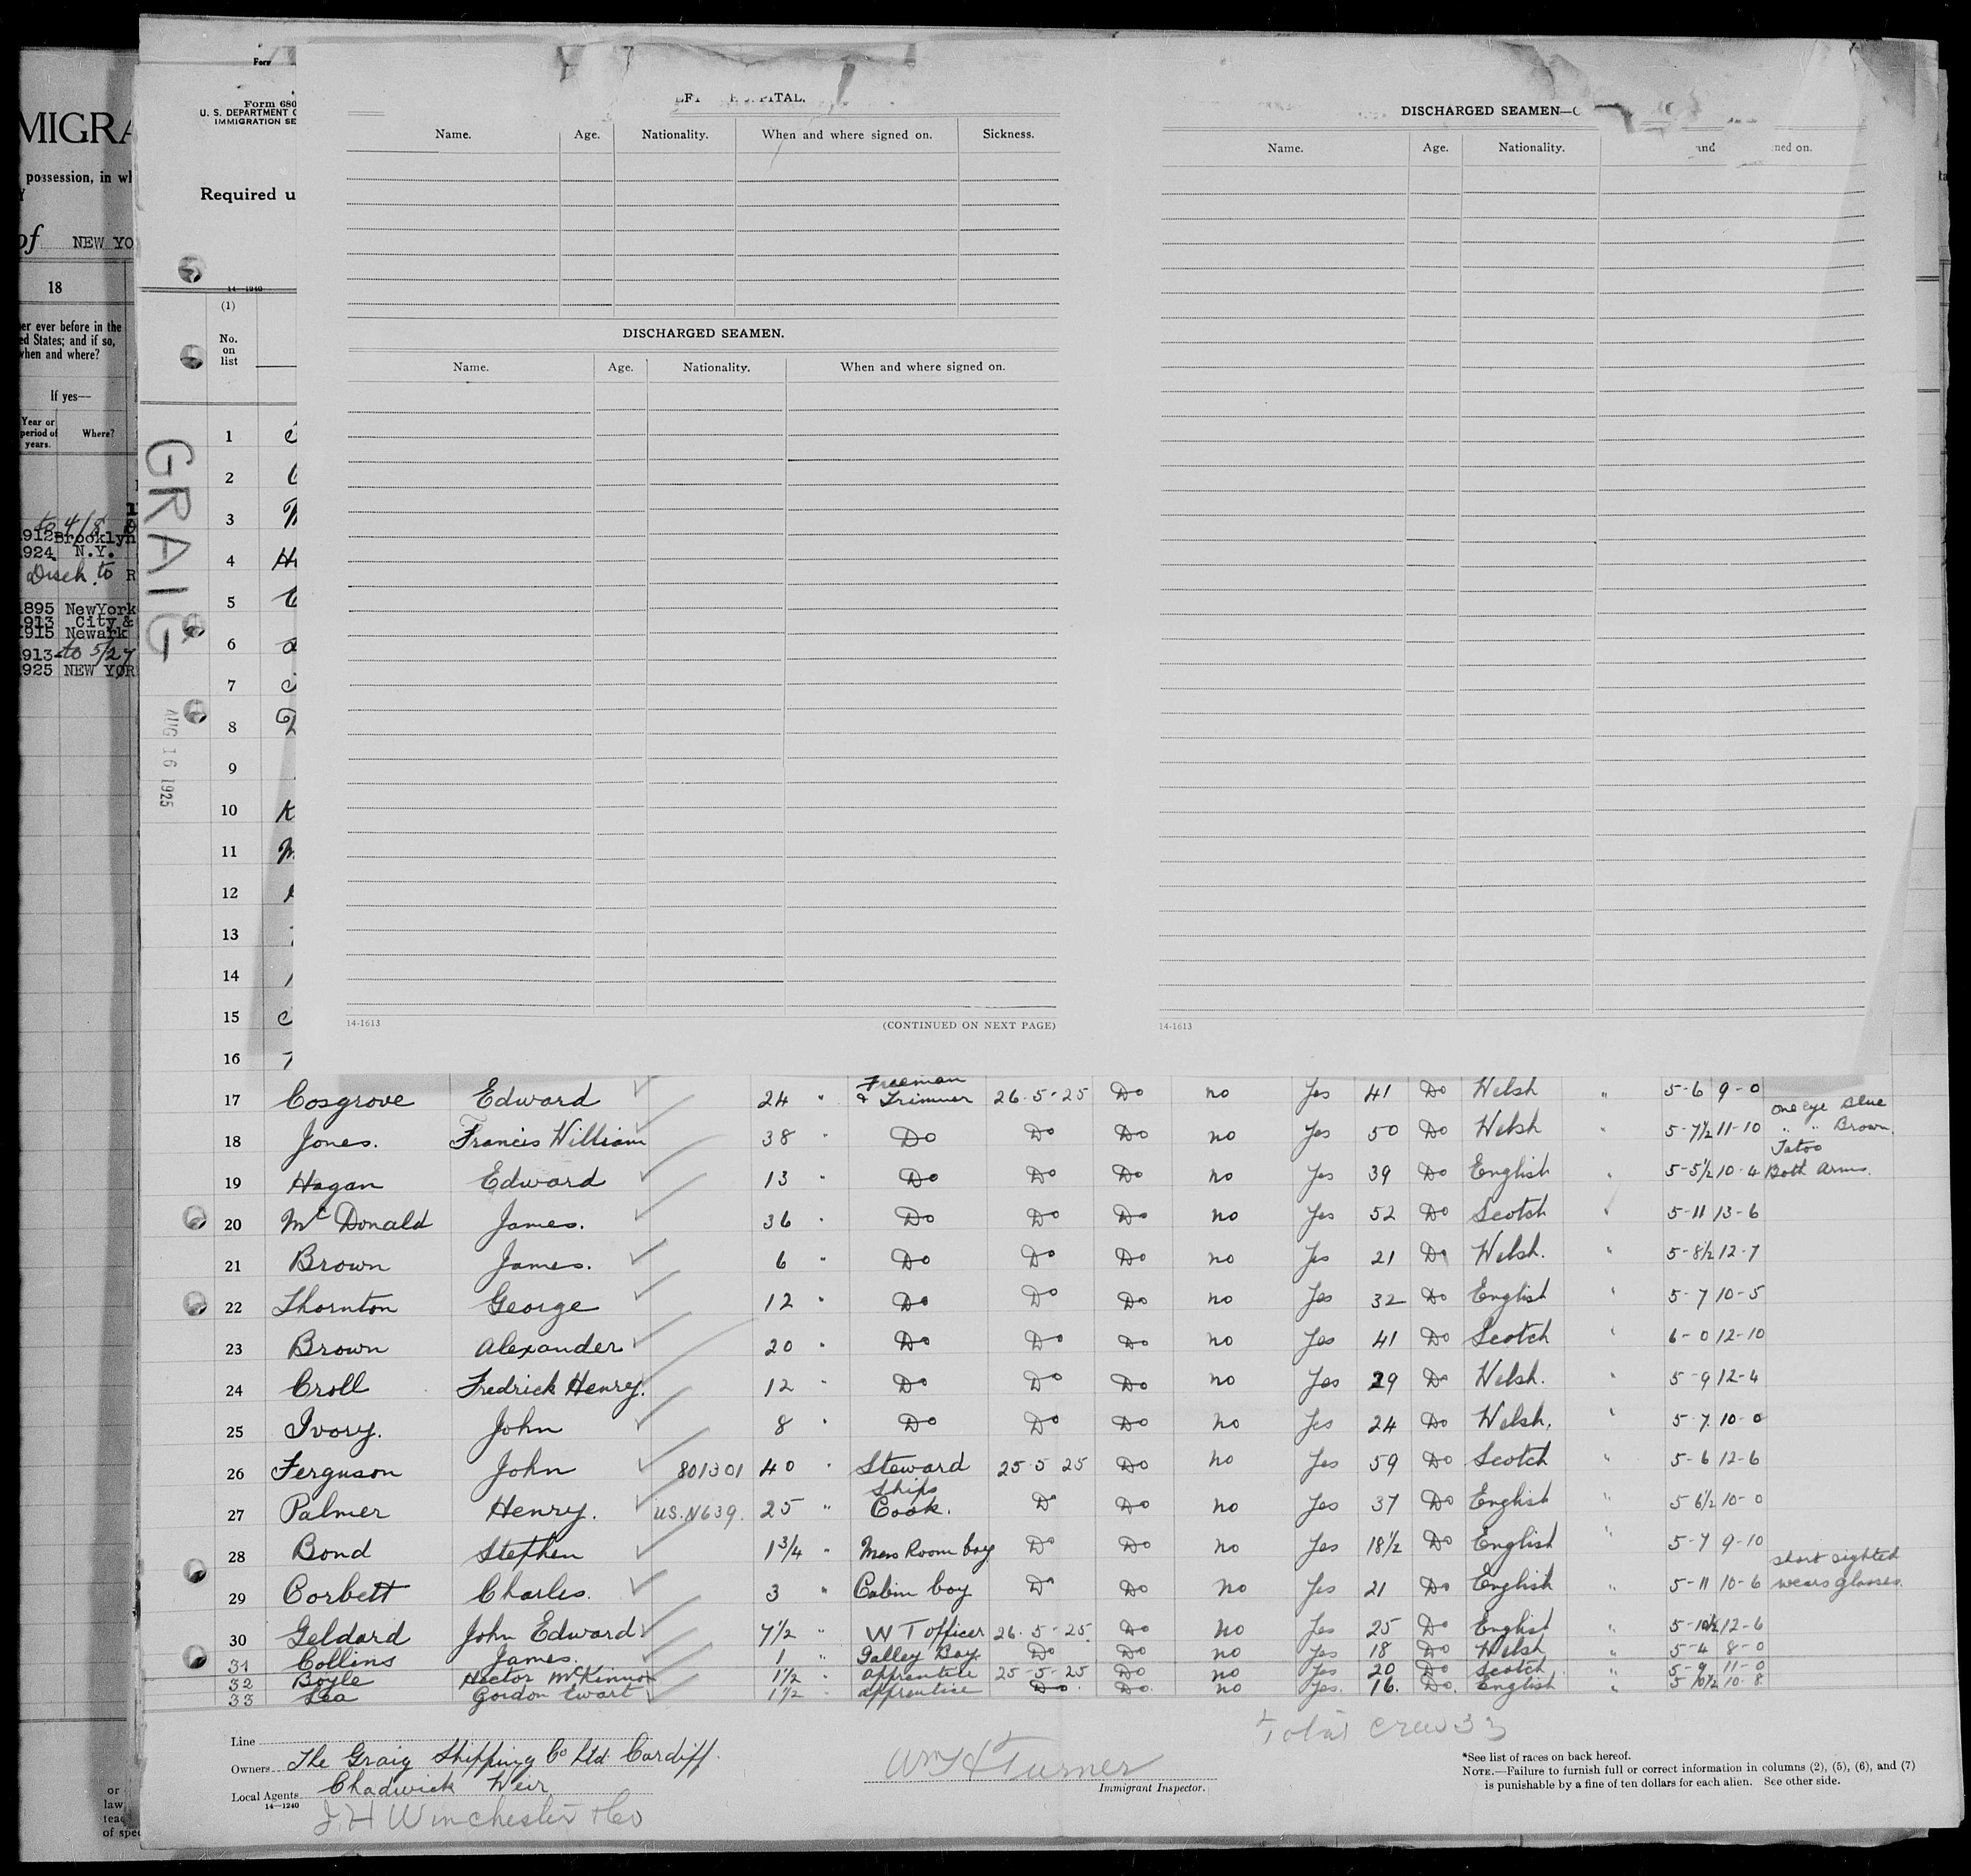 MIGRA
possession, in wh
of NEW YO
18
er ever before in the
ed States; and if so,
when and where?
If yes—
Year or
period of
years.
Where?
to 4/8
1912 Brooklyn
1924 N.Y.
Disch. to R
1895 NewYork
1913 City &
1915 Newark
1913 to 5/27
1925 NEW YOR
or
law
teac
of spec
Form 680
U. S. DEPARTMENT O
IMMIGRATION SE
Required u
14—1240
(1)
No.
on
list
GRAIG
AUG 16 1925
1
2
3
4
5
6
7
8
9
10
11
12
13
14
15
16
HOSPITAL.
Name. Age. Nationality. When and where signed on. Sickness.
DISCHARGED SEAMEN.
Name. Age. Nationality. When and where signed on.
14-1613
(CONTINUED ON NEXT PAGE)
DISCHARGED SEAMEN—C
Name. Age. Nationality. and ned on.
14-1613
17 Cosgrove Edward 24 " Freeman & Trimmer 26-5-25 Do no Yes 41 Do Welsh " 5-6 9-0
18 Jones. Francis William 38 " Do Do Do no Yes 50 Do Welsh " 5-7½ 11-10 one eye Blue " " Brown.
19 Hagan Edward 13 " Do Do Do no Yes 39 Do English " 5-5½ 10-4 Tatoo Both Arms.
20 McDonald James. 36 " Do Do Do no Yes 52 Do Scotch " 5-11 13-6
21 Brown James. 6 " Do Do Do no Yes 21 Do Welsh. " 5-8½ 12-7
22 Thornton George 12 " Do Do Do no Yes 32 Do English " 5-7 10-5
23 Brown Alexander 20 " Do Do Do no Yes 41 Do Scotch " 6-0 12-10
24 Croll Fredrick Henry. 12 " Do Do Do no Yes 29 Do Welsh. " 5-9 12-4
25 Ivory. John 8 " Do Do Do no Yes 24 Do Welsh. " 5-7 10-0
26 Ferguson John 801301 40 " Steward 25-5-25 Do no Yes 59 Do Scotch " 5-6 12-6
27 Palmer Henry. US.N639. 25 " Ships Cook. Do Do no Yes 37 Do English " 5 6½ 10-0
28 Bond Stephen 1¾ " Mess Room boy Do Do no Yes 18½ Do English " 5-7 9-10
29 Corbett Charles. 3 " Cabin boy Do Do no Yes 21 Do English " 5-11 10-6 short sighted wears glasses.
30 Geldard John Edward 7½ " W T officer 26-5-25. Do no Yes 25 Do English " 5-10½ 12-6
31 Collins James. 1 " Galley Boy Do Do no Yes 18 Do Welsh " 5-4 8-0
32 Boyle Hector McKinnon 1½ " apprentice 25-5-25 Do no Yes 20 Do Scotch " 5-9 11-0
33 Lea Gordon Ewart 1½ " apprentice Do. Do. no Yes. 16. Do. English " 5-10½ 10-8
Total crew 33
Line
Owners The Graig Shipping Co Ltd. Cardiff.
Chadwick Weir
Local Agents
14—1240
J. H Winchester & Co
Wm H Turner
Immigrant Inspector.
*See list of races on back hereof.
NOTE.—Failure to furnish full or correct information in columns (2), (5), (6), and (7)
is punishable by a fine of ten dollars for each alien. See other side.